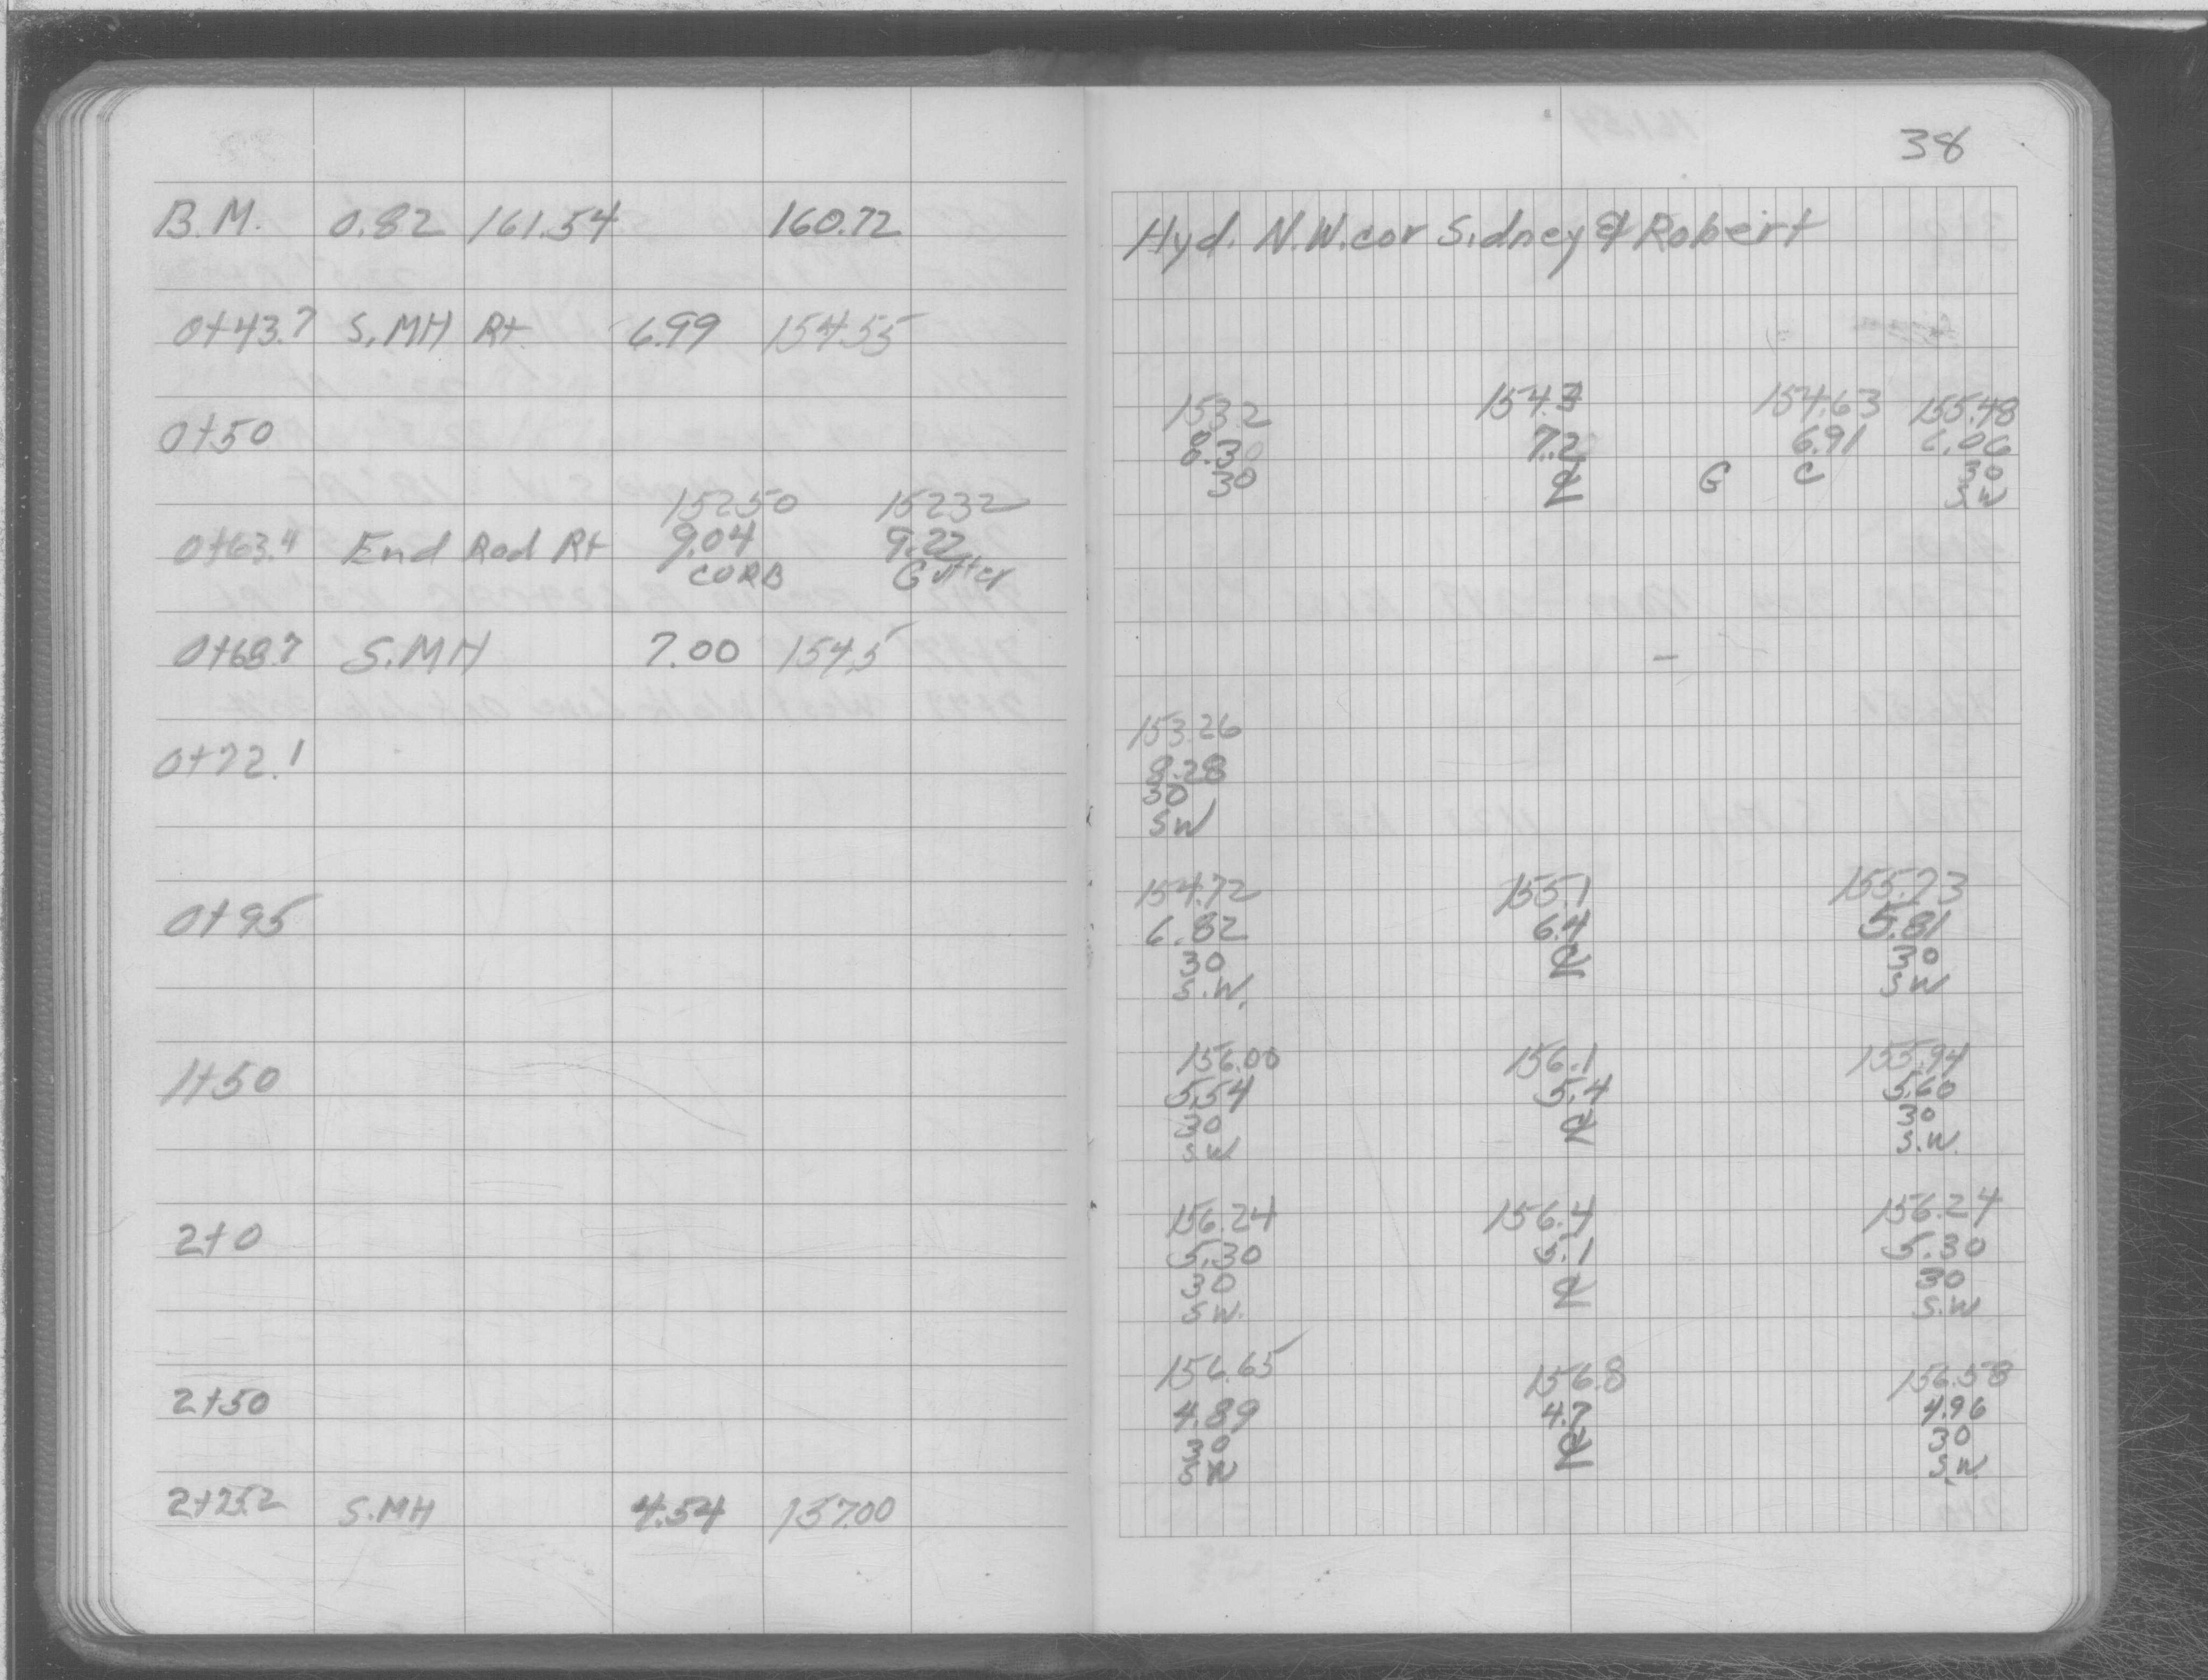 38
B.M. 0.82 161.54 160.72 Hyd. N.W. cor Sidney & Robert
0+43.7 S.MH Rt 6.99 154.55
153.2 154.3 154.63 155.48
0+50 8.30 7.2 6.91 6.06
30 ℄ G C 30
S.W
152.50 152.32
0+63.4 End Rad Rt 9.04 9.22
CURB Gutter
0+68.7 S.MH 7.00 154.5
153.26
0+72.1 8.28
30
SW
154.72 155.1 155.73
0+95 6.82 6.4 5.81
30 ℄ 30
S.W. SW
156.00 156.1 155.94
1+50 5.54 5.4 5.60
30 ℄ 30
SW S.W.
156.24 156.4 156.24
2+0 5.30 5.1 5.30
30 ℄ 30
S.W. S.W
156.65 156.8 156.58
2+50 4.89 4.7 4.96
30 ℄ 30
SW S.W
2+25.2 S.MH 4.54 157.00